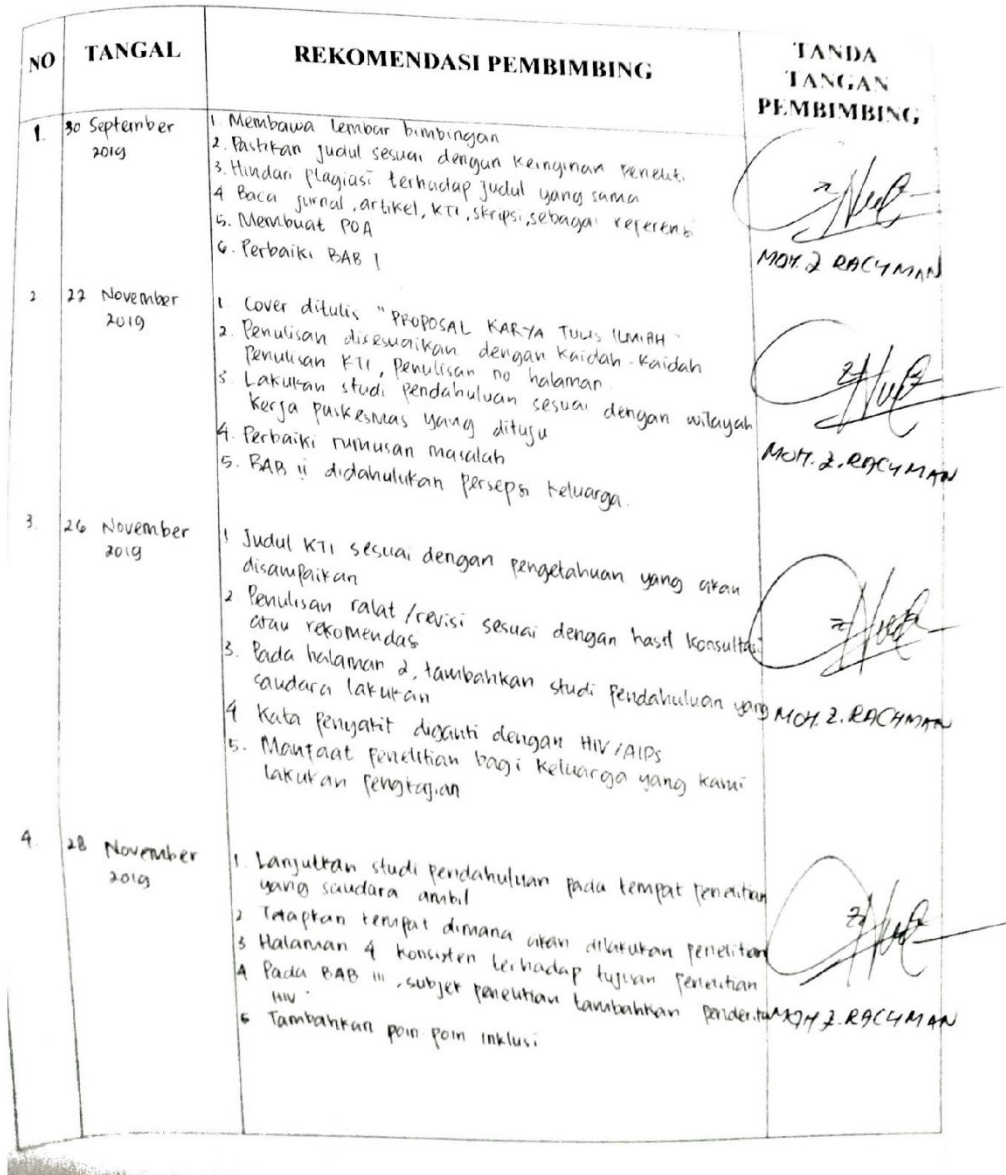 NO
TANGAL
REKOMENDASI PEMBIMBING
TANDA
TANGAN
PEMBIMBING
1.
30 September
2019
1. Membawa lembar bimbingan
2. Pastikan judul sesuai dengan keinginan peneliti
3. Hindari plagiasi terhadap judul yang sama
4 Baca jurnal, artikel, KTI, skripsi, sebagai referensi
5. Membuat POA
6. Perbaiki BAB I
MOH. Z RACHMAN
2.
22 November
2019
1. Cover ditulis "PROPOSAL KARYA TULIS ILMIAH"
2. Penulisan disesuaikan dengan kaidah-kaidah
penulisan KTI, penulisan no halaman.
3. Lakukan studi pendahuluan sesuai dengan wilayah
kerja puskesmas yang dituju
4. Perbaiki rumusan masalah
5. BAB ii didahulukan persepsi keluarga.
MOH. Z. RACHMAN
3.
26 November
2019
1 Judul KTI sesuai dengan pengetahuan yang akan
disampaikan
2. Penulisan ralat/revisi sesuai dengan hasil konsultasi
atau rekomendas
3. Pada halaman 2, tambahkan studi pendahuluan yang
saudara lakukan
4 Kata penyakit diganti dengan HIV/AIDS
5. Manfaat penelitian bagi keluarga yang kami
lakukan pengkajian
MOH. Z. RACHMAN
4.
28 November
2019
1. Lanjutkan studi pendahuluan pada tempat penelitian
yang saudara ambil
2 Tetapkan tempat dimana akan dilakukan penelitian
3 Halaman 4 konsisten terhadap tujuan penelitian
4 Pada BAB III, subjek penelitian tambahkan penderita
HIV.
5 Tambahkan poin-poin inklusi
MOH Z. RACHMAN